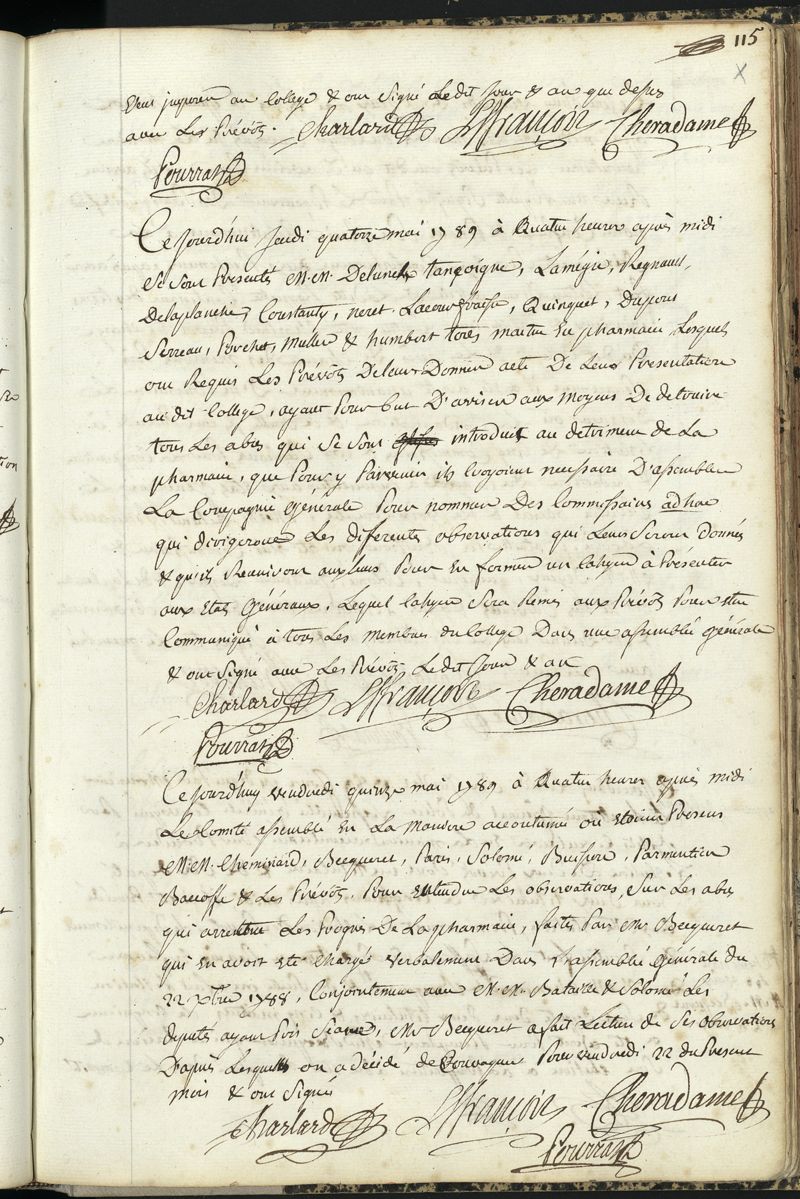 115
au College & ont Signé Ledit Jour & an que dessus
avec Les Prévôts. Charlard LfFrançois Cheradame
Pourrat
Cejourd'hui Jeudi quatorze mai 1789 à Quatre heures après midi
Se Sont Présentés M.M. Delunel, tançoigne, Lamégie, Regnault,
Delaplanche, Constanty, neret, Lacour, Quinquet, Dupont
Serreau, Porchet, Muller & humbert tous maitres En pharmacie Lesquels
ont Requis Les Prévôts De leur Donner acte De Leur Présentation
au dit College, ayant Pour but D'aviser aux moyens De détruire
tous Les abus qui Se Sont introduit au détriment de La
pharmacie, que Pour y Parvenir ils Croyoient nécessaire D'assembler
La Compagnie Générale Pour nommer Des Commissaires ad hoc
qui dirigeront Les diferentes observations qui Leurs Seront Données
& qu'ils Réuniront aux Leurs Pour En former un Cahyer à Présenter
aux Etats Généraux, Lequel Cahyer Sera Remis aux Prévôts Pour etre
Communiqué à tous Les Membres du College Dans une assemblée générale
& ont Signé avec Les Prévôts Ledit Jour & an
Charlard LfFrançois Cheradame
Pourrat
Cejourd'huy vendredi quinze mai 1789 à Quatre heures après midi
Le Comité assemblé En La Maniere accoutumée où étoient Présens
M.M. Cheminard, Becqueret, Paris, Solomé, Buisson, Parmentier
Bacoffe & Les Prévôts, Pour entendre Les observations, Sur Les abus
qui arretent Les Progrès De La pharmacie, faites Par Mr Becqueret
qui En avoit été Chargé verbalement Dans L'assemblée Générale du
22 xbre 1788, Conjointement avec M.M. Bataille & Solomé Les
députés ayant Pris Séance, Mr Becqueret a fait Lecture de Ses Observations
D'après Lesquelles on a décidé de Convoquer Pour vendredi 22 du Présent
mois & ont Signés
Charlard LfFrançois Cheradame
Pourrat